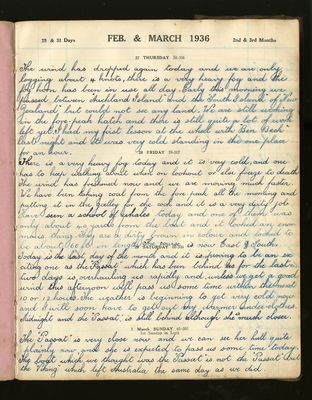 29 & 31 Days
FEB. & MARCH 1936
2nd & 3rd Months
27 THURSDAY 58-308
The wind has dropped again today and we are only
logging about 4 knots, there is a very heavy fog and the
fog horn has been in use all day. Early this morning we
passed between Auckland Island and the South Islands of New
Zealand but could not see any land. We are still working
in the fore-peak hatch and there is still quite a lot of work
left yet. I had my first lesson at the wheel with Ben Bech
last night and it was very cold standing in the one place
for an hour.
28 FRIDAY 59-307
There is a very heavy fog today and it is very cold, and one
has to keep walking about when on lookout or else freeze to death.
The wind has freshened now and we are moving much faster.
We have been taking coal from the fore peak all the morning and
putting it in the galley for the cook and it is a very dirty job
Have seen a school of whales today and one of them was
only about 40 yards from the boat and it looked an enor-
mous thing. They are a dirty brown in colour and looked to
be about 60 ft. in length. The course is now East & South.
29 SATURDAY
Today is the last day of the month and it is proving to be an ex-
citing one as the "Passat" which has been behind us for the last
two days is overhauling us rapidly and unless we get a good
wind this afternoon will pass us some time within the next
10 or 12 hours. The weather is beginning to get very cold now
and I will soon have to get out my warmer underclothes.
Midnight and the "Passat" is still behind although she's much closer.
1 March SUNDAY 61-305
1st Sunday in Lent
The "Passat" is very close now and we can see her hull quite
plainly now and she is expected to pass us some time today.
The boat which we thought was the "Passat" is not the "Passat" but
the "Viking" which left Australia the same day as we did.